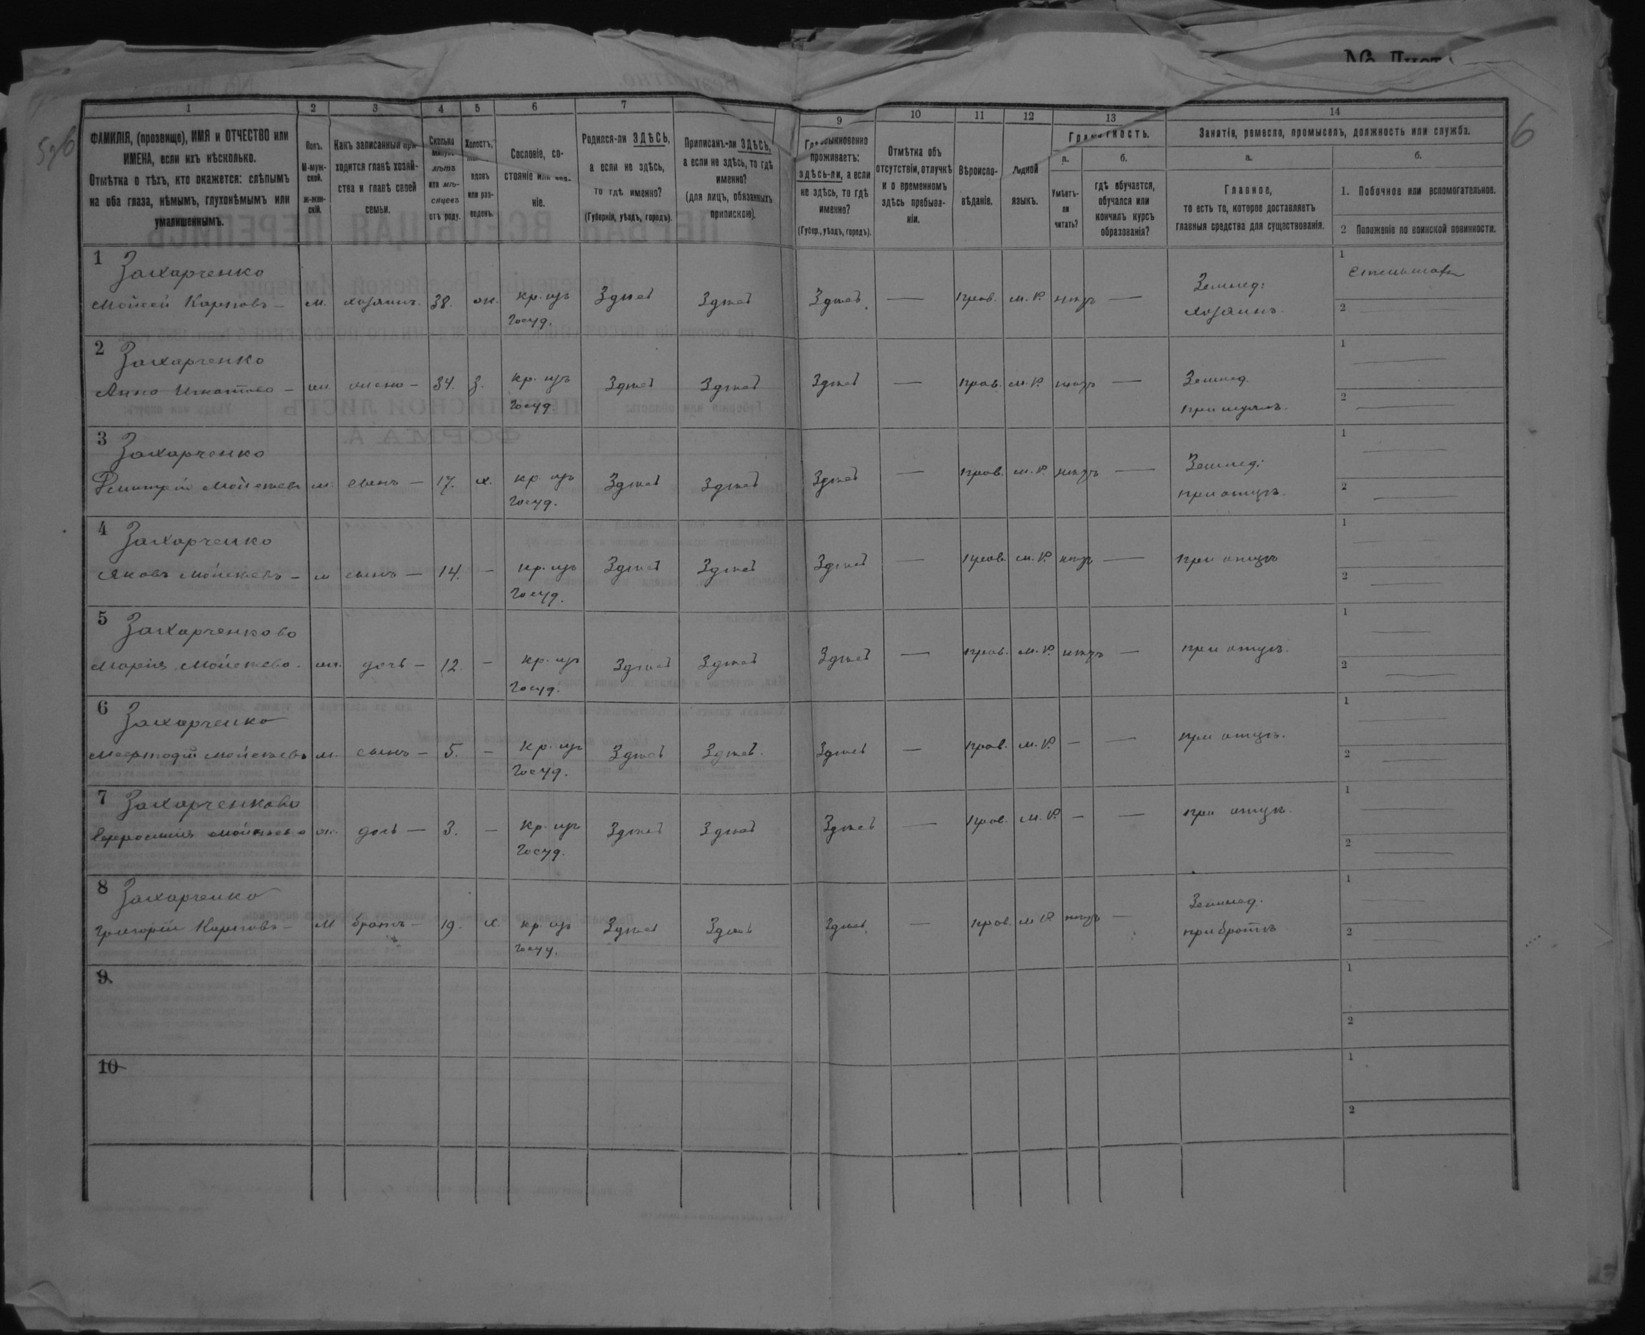 № Лист
596
6
1 2 3 4 5 6 7 9 10 11 12 13 14
ФАМИЛІЯ, (прозвище), ИМЯ и ОТЧЕСТВО или ИМЕНА, если ихъ нѣсколько.
Отмѣтка о тѣхъ, кто окажется: слѣпымъ на оба глаза, нѣмымъ, глухонѣмымъ или умалишеннымъ.
Полъ. М-муж-ской. ж-жен-скій.
Какъ записанный при-ходится главѣ хозяй-ства и главѣ своей семьи.
Сколько
или
отъ роду.
Холостъ,
вдовъ или раз-веденъ.
Сословіе, со-стояніе или зва-ніе.
Родился-ли ЗДѢСЬ, а если не здѣсь, то гдѣ именно?
(Губернія, уѣздъ, городъ).
Приписанъ-ли ЗДѢСЬ, а если не здѣсь, то гдѣ именно?
(для лицъ, обязанныхъ припискою).
проживаетъ: здѣсь-ли, а если не здѣсь, то гдѣ именно?
(Губер., уѣздъ, городъ).
Отмѣтка объ отсутствіи, отлучкѣ и о временномъ здѣсь пребыва-ніи.
Вѣроиспо-вѣданіе.
Родной языкъ.
Грамотность.
а.
Умѣетъ-ли читать?
б.
гдѣ обучается, обучался или кончилъ курсъ образованія?
Занятіе, ремесло, промыселъ, должность или служба.
а.
Главное,
то есть то, которое доставляетъ главныя средства для существованія.
б.
1. Побочное или вспомогательное.
2 Положеніе по воинской повинности.
1 Захарченко 1
Мойсей Карповъ – м. хозяинъ 38. ж. кр. изъ госуд. Здѣсь Здѣсь Здѣсь — прав. м. Р. нѣтъ — Землед: хозяинъ. 2
2 Захарченко 1
Анна Игнатова – ж жена – 34. з. кр. изъ госуд Здѣсь Здѣсь Здѣсь — прав. м. Р. нѣтъ — Землед. при мужѣ. 2
3 Захарченко 1
Дмитрій Мойсеевъ м. сынъ – 17. х. кр изъ госуд. Здѣсь Здѣсь Здѣсь — прав. м. Р. нѣтъ — Землед: при отцѣ. 2
4 Захарченко 1
Яковъ Мойсеевъ – м сынъ – 14. – кр. изъ госуд. Здѣсь Здѣсь Здѣсь — прав. м. Р. нѣтъ — при отцѣ 2
5 Захарченкова 1
Марія Мойсеева. ж. дочь – 12. – кр. изъ госуд. Здѣсь Здѣсь Здѣсь — прав. м. Р. нѣтъ — при отцѣ. 2
6 Захарченко 1
Мефодій Мойсеевъ м. сынъ – 5. – кр. изъ госуд. Здѣсь Здѣсь. Здѣсь — прав. м. Р. – — при отцѣ. 2
7 Захарченкова 1
Ефросинія Мойсеева ж. дочь – 3. – кр. изъ госуд. Здѣсь Здѣсь Здѣсь — прав. м. Р. – — при отцѣ. 2
8 Захарченко 1
Григорій Карповъ – м братъ – 19. х кр. изъ госуд. Здѣсь Здѣсь Здѣсь. — прав. м Р. нѣтъ — Землед. при братѣ. 2
9 1
2
10 1
2